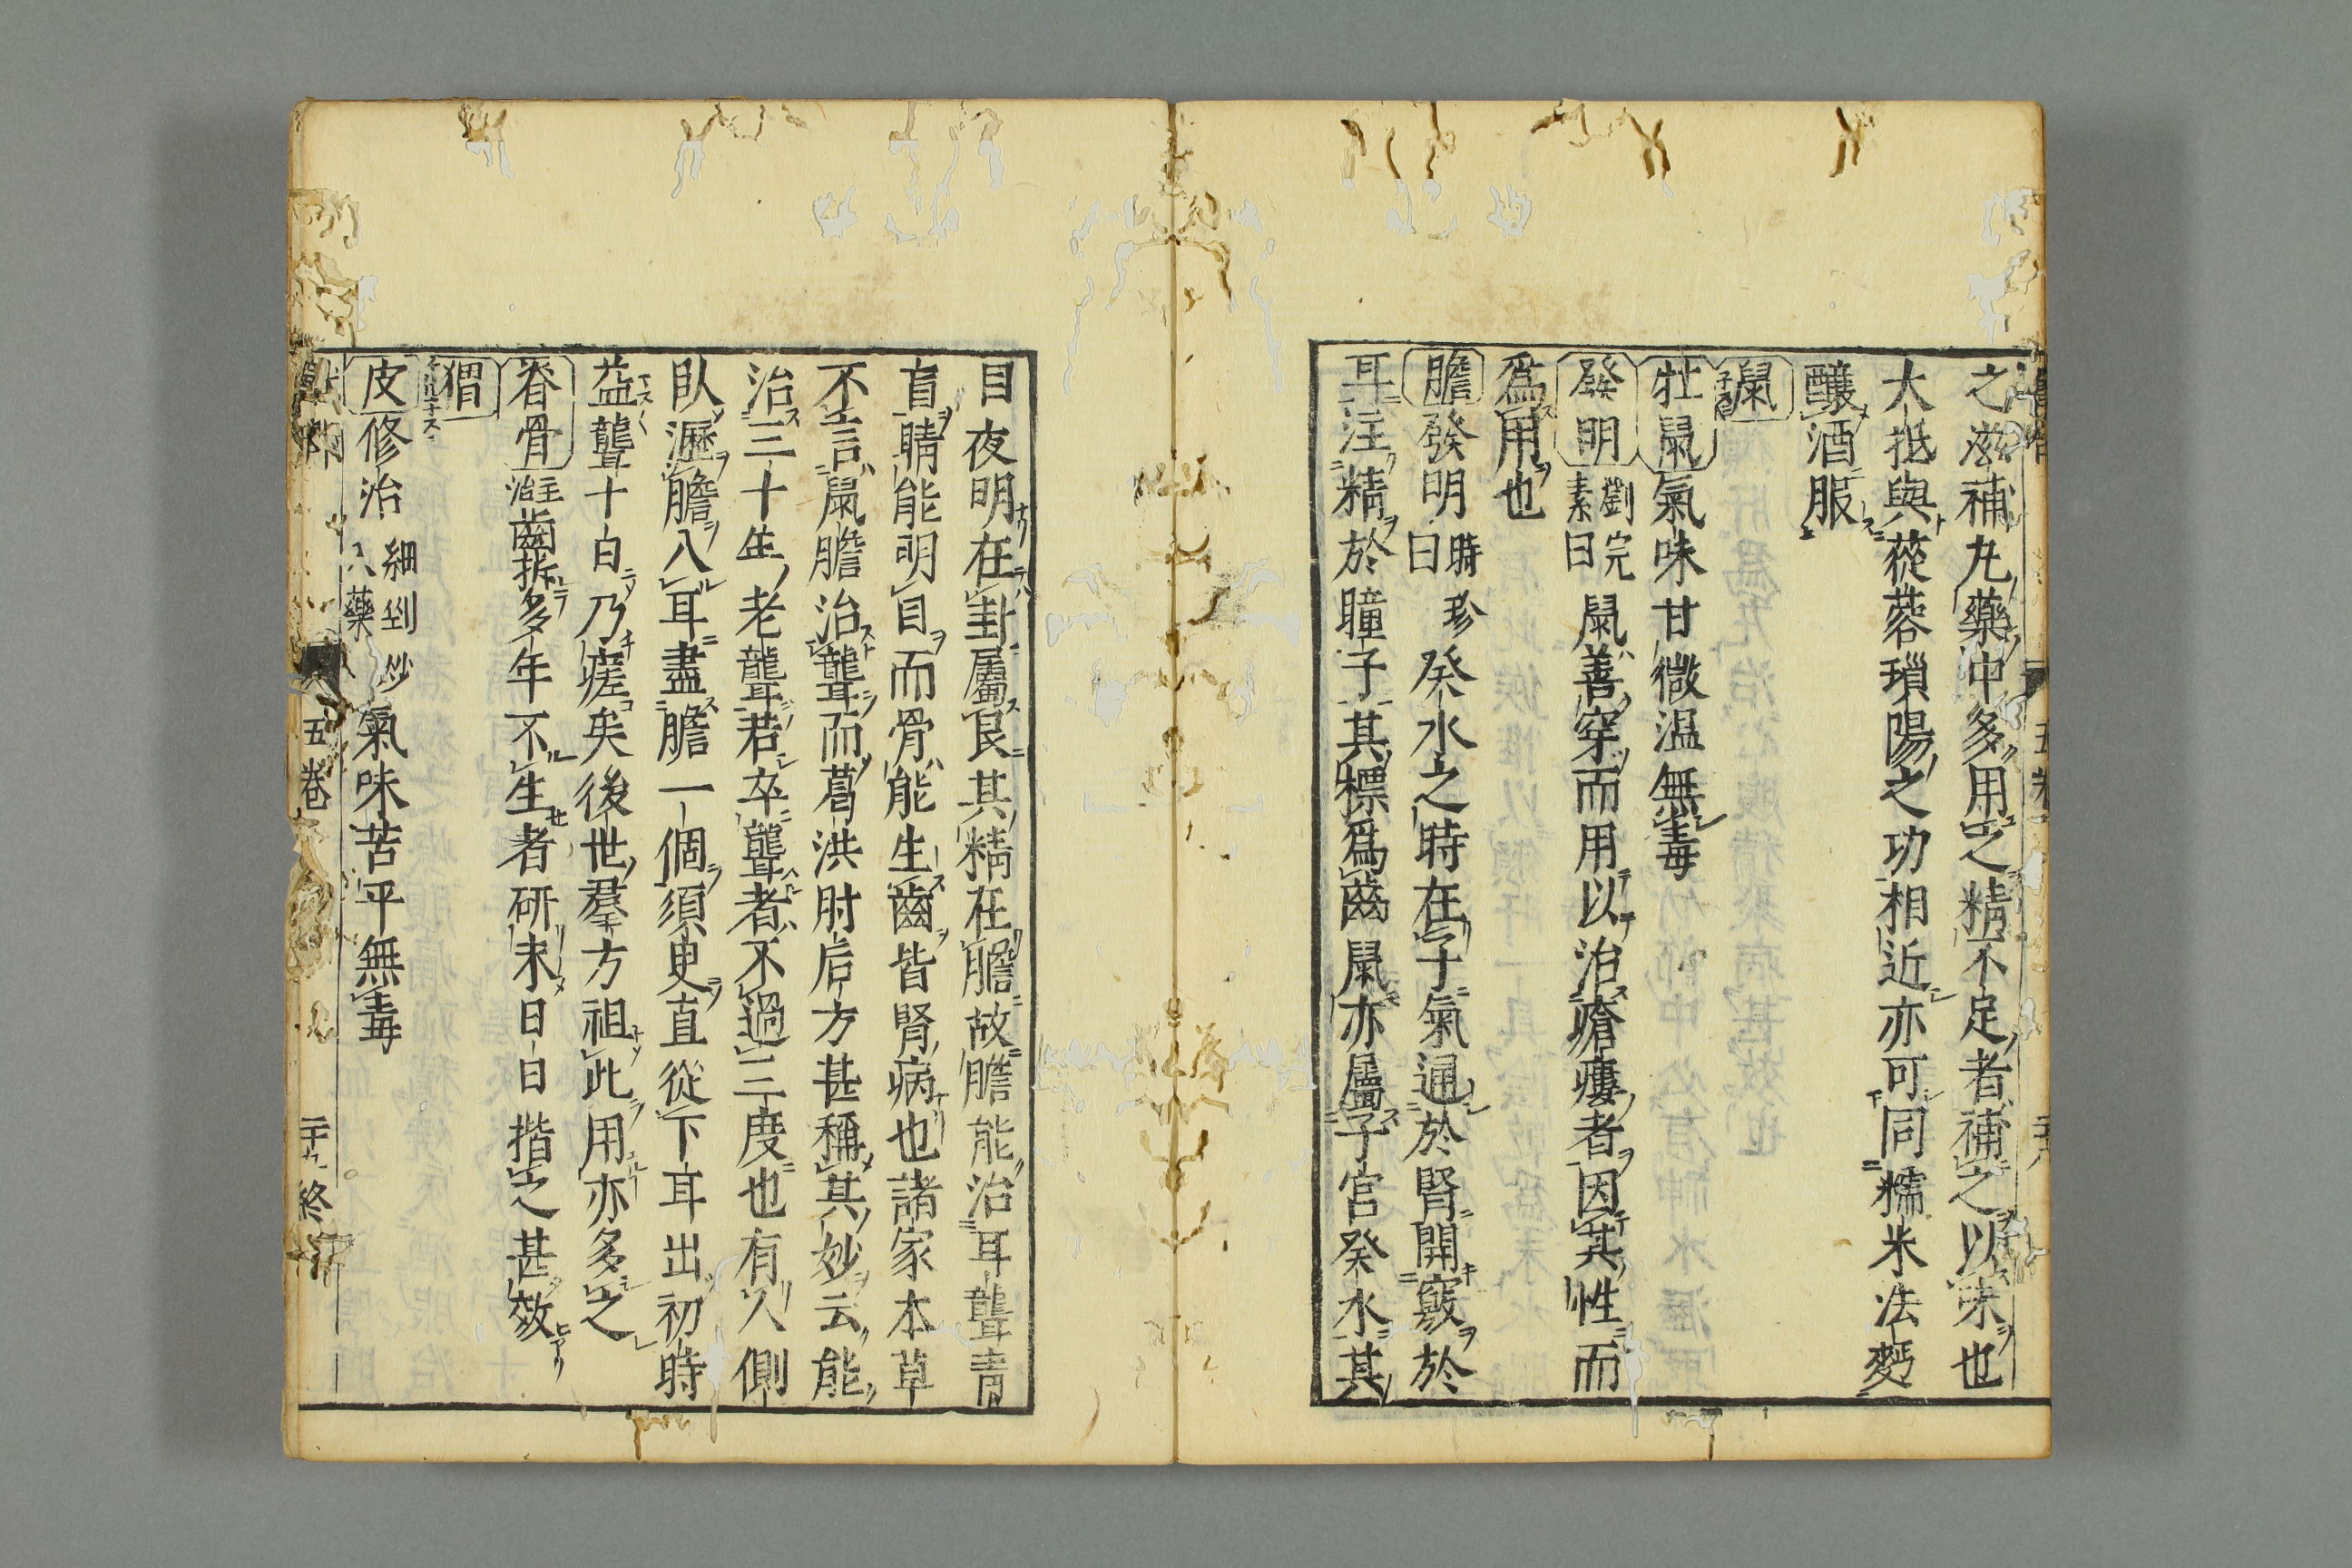 之滋補丸藥中多用之精不足者補之以味也
大抵與蓯蓉瑣陽之功相近亦可同糯米法麪
釀酒服
鼠
牡鼠氣味甘微温無毒
發明劉完素曰鼠善穿而用以治瘡瘻者因其性而
爲用也
膽發明時珍曰癸水之時在子氣通於腎開竅於
耳注精於瞳子其標爲齒鼠亦屬子宮癸水其
目夜明在卦屬艮其精在膽故膽能治耳聾青
盲睛能明目而骨能生齒皆腎病也諸家本草
不言鼠膽治聾而葛洪肘后方甚稱其妙云能
治三十年老聾若卒聾者不過三度也有人側
臥瀝膽入耳盡膽一個須臾直從下耳出初時
益聾十日乃瘥矣後世羣方祖此用亦多之
脊骨主治齒折多年不生者研末日日揩之甚效
猬
皮修治細剉炒入藥氣味苦平無毒
獸部
五卷
二十九終